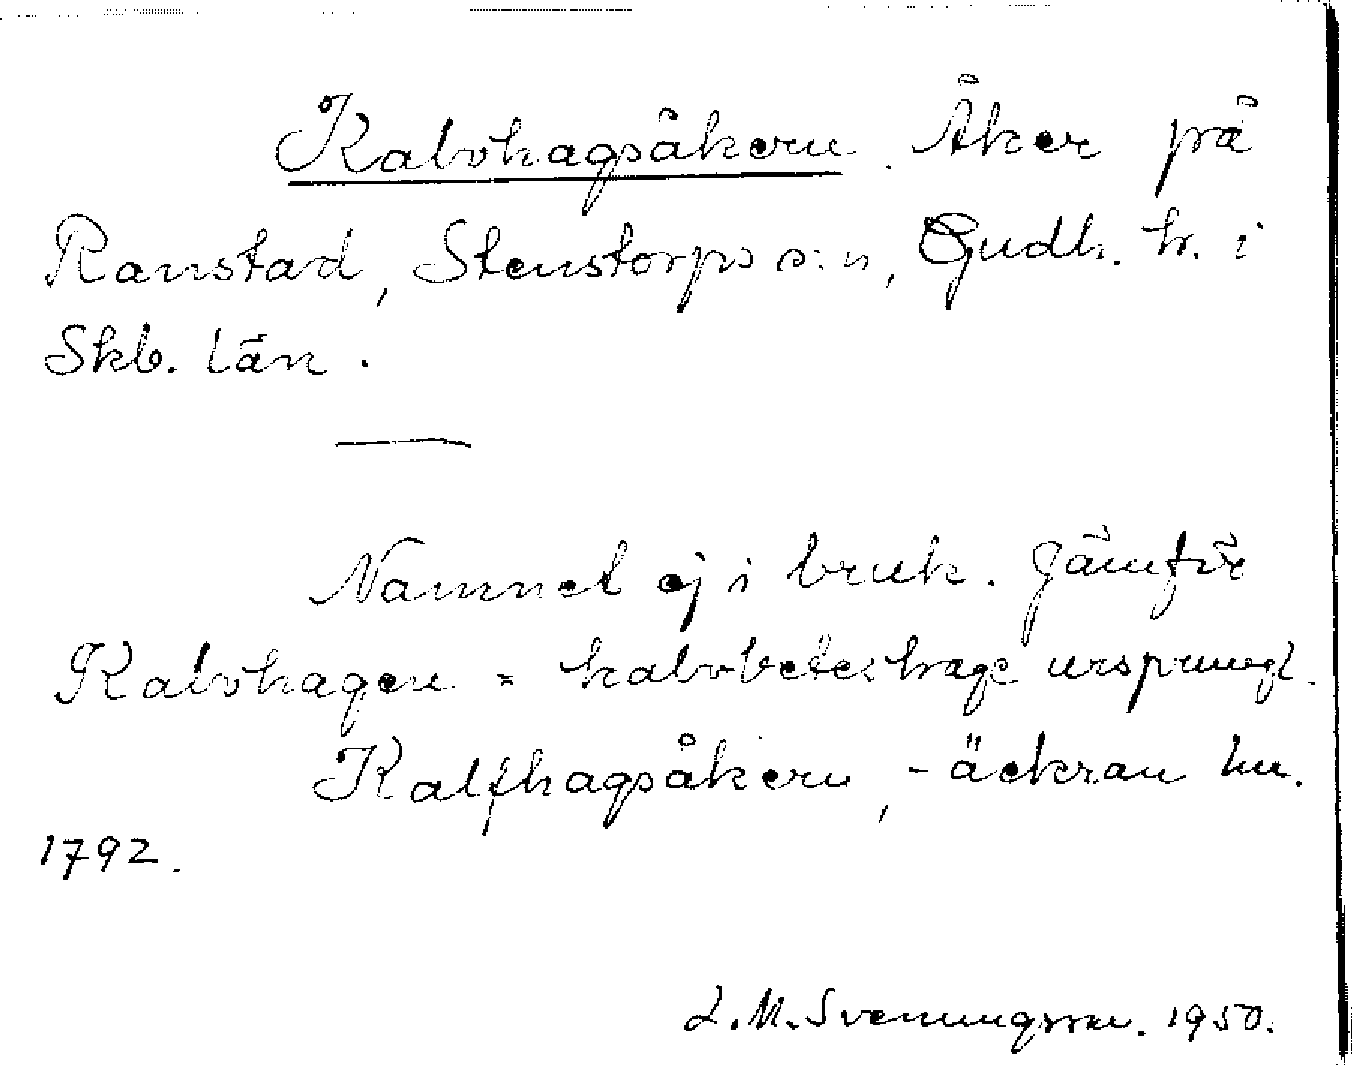 Kalvhagsåkern. Åker på
Ranstad, Stenstorps s:n, Gudh. hr. i
Skb. län.
Namnet ej i bruk. Jämför
Kalvhagen = kalvbeteshage ursprungl.
Kalfhagsåkern, -äckran lm.
1792.
L.M. Svenungsson. 1950.